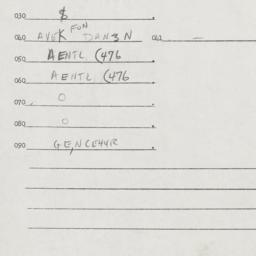 030 $
FON
040 AVEK DAN3N 041 —
050 AENTL (476
060 AENTL (476
070 O
080 O
090 GENCEHYR